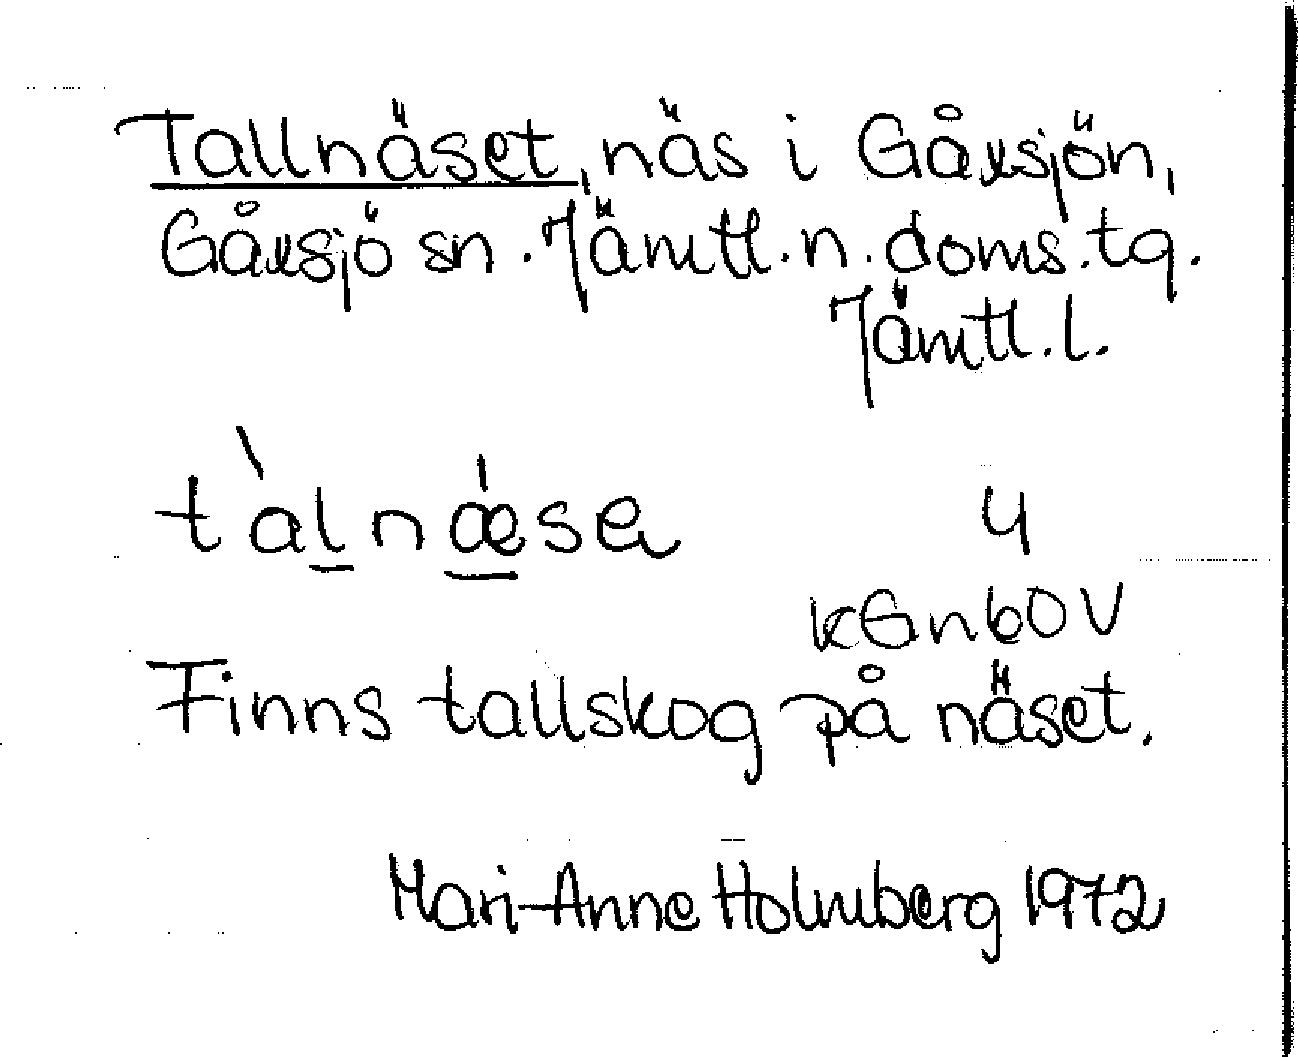 Tallnäset, näs i Gåxsjön,
Gåxsjö sn. Jämtl. n. doms. tg.
Jämtl. l.
tàlnǽsa 4
kGn60V
Finns tallskog på näset.
Mari-Anne Holmberg 1972